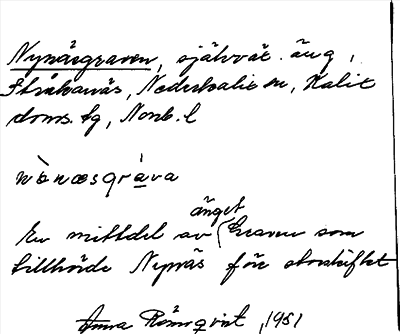 Nynäsgraven, självväx. äng,
Stråkanäs, Nederkalix sn, Kalix
doms. tg, Norrb. l
nỳnæsgràva
En mittdel av änget Graven som
tillhörde Nynäs före storskiftet
Anna Rönnqvist, 1951